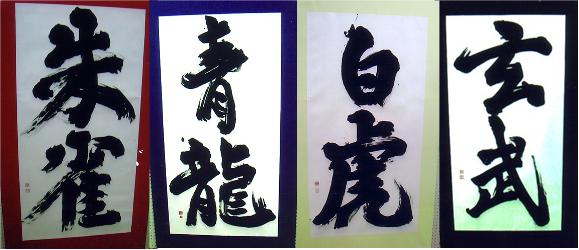 朱雀
青龍
白虎
玄武